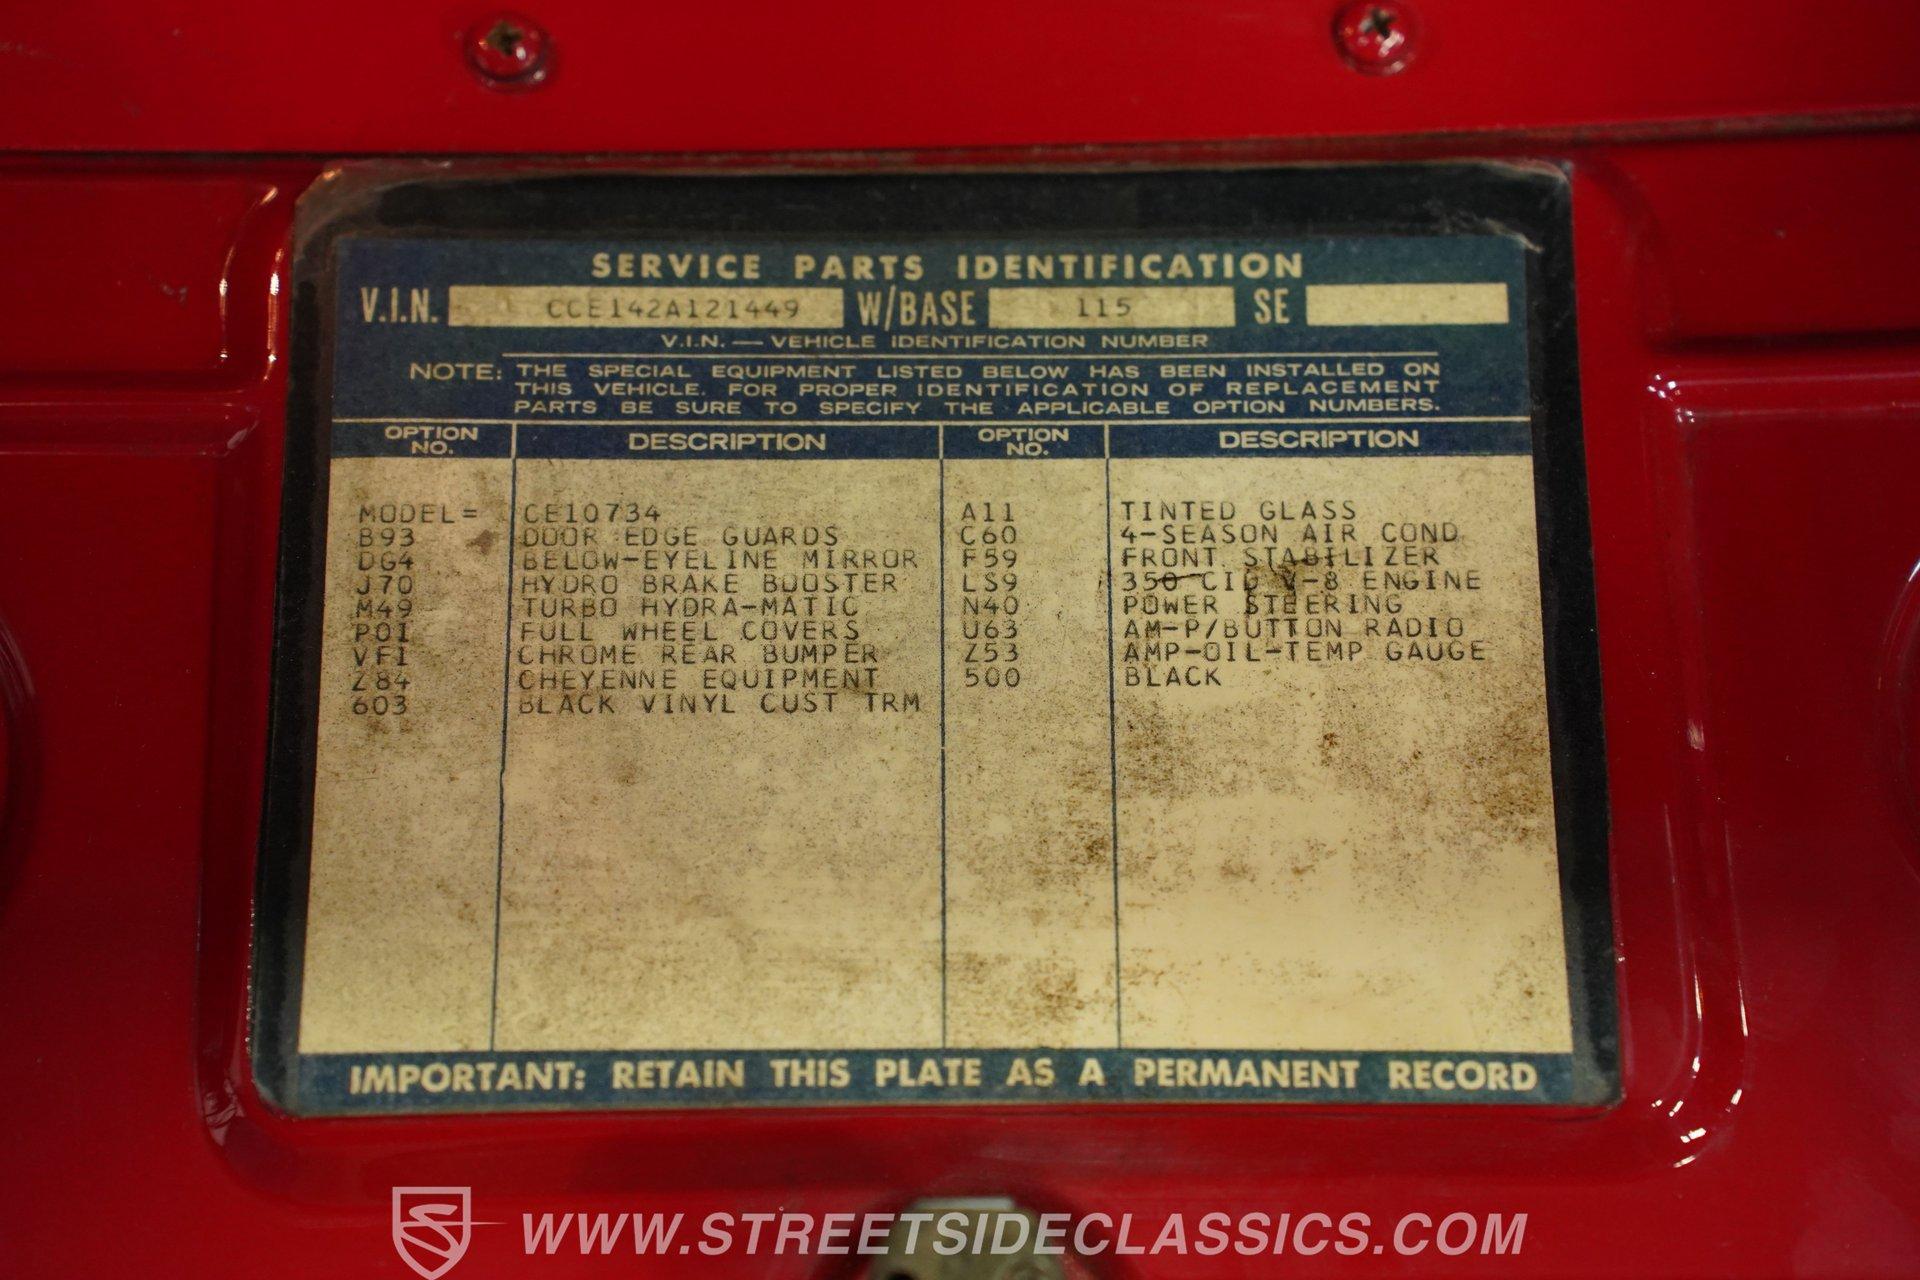 SERVICE PARTS IDENTIFICATION
V.I.N. CCE142A121449 W/BASE 115 SE
V.I.N. — VEHICLE IDENTIFICATION NUMBER
NOTE: THE SPECIAL EQUIPMENT LISTED BELOW HAS BEEN INSTALLED ON
THIS VEHICLE. FOR PROPER IDENTIFICATION OF REPLACEMENT
PARTS BE SURE TO SPECIFY THE APPLICABLE OPTION NUMBERS.
OPTION NO. DESCRIPTION OPTION NO. DESCRIPTION
MODEL= CE10734 A11 TINTED GLASS
B93 DOOR EDGE GUARDS C60 4-SEASON AIR COND
DG4 BELOW-EYELINE MIRROR F59 FRONT STABILIZER
J70 HYDRO BRAKE BOOSTER LS9 350 CID V-8 ENGINE
M49 TURBO HYDRA-MATIC N40 POWER STEERING
P01 FULL WHEEL COVERS U63 AM-P/BUTTON RADIO
VF1 CHROME REAR BUMPER Z53 AMP-OIL-TEMP GAUGE
Z84 CHEYENNE EQUIPMENT 500 BLACK
603 BLACK VINYL CUST TRM
IMPORTANT: RETAIN THIS PLATE AS A PERMANENT RECORD
WWW.STREETSIDECLASSICS.COM